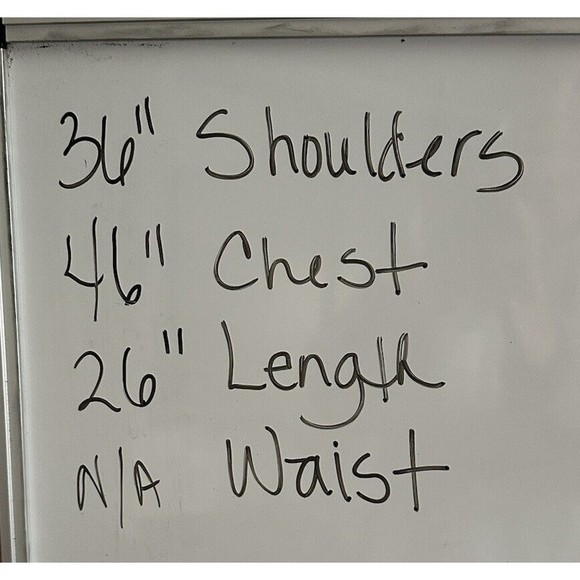 36" Shoulders
46" Chest
26" Length
N/A Waist